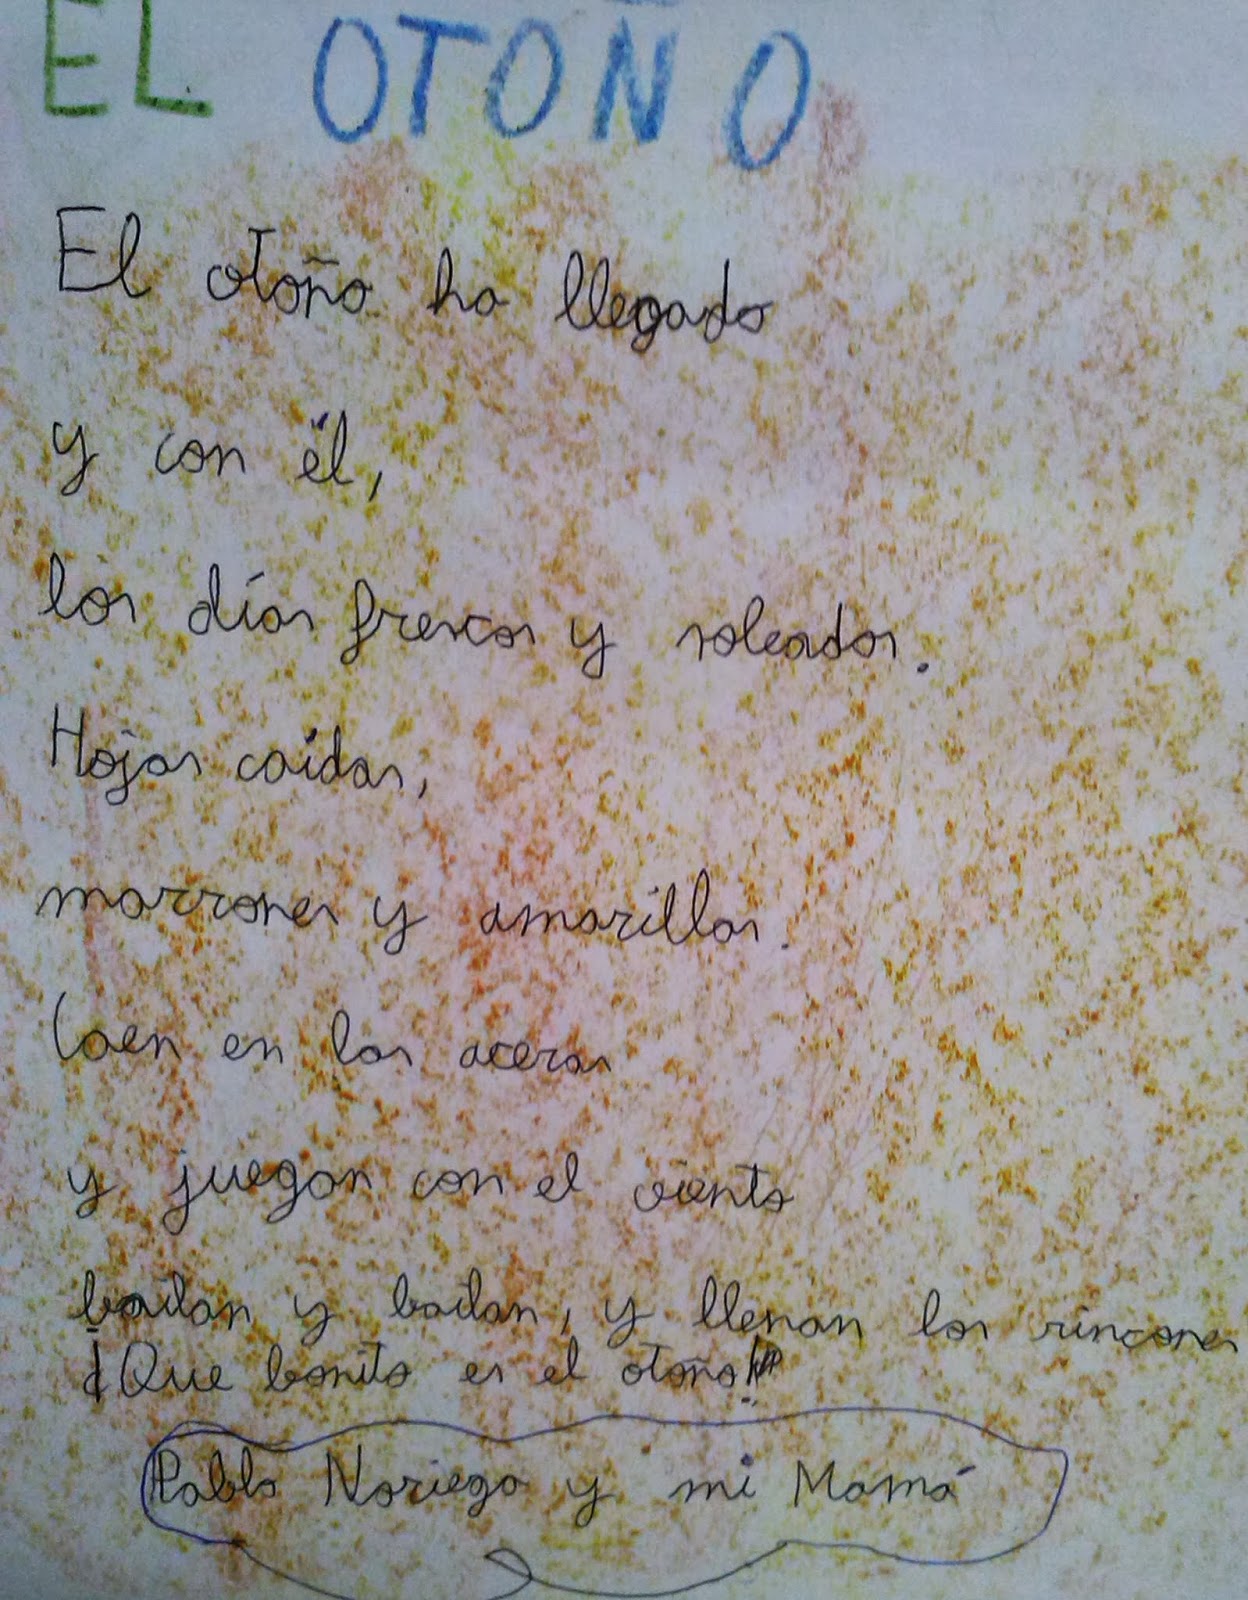 EL OTOÑO
El otoño ha llegado
y con él,
los días frescos y soleados.
Hojas caídas,
marrones y amarillas.
Caen en las aceras
y juegan con el viento
bailan y bailan, y llenan los rincones
¡Que bonito es el otoño!
Pablo Noriega y mi Mamá